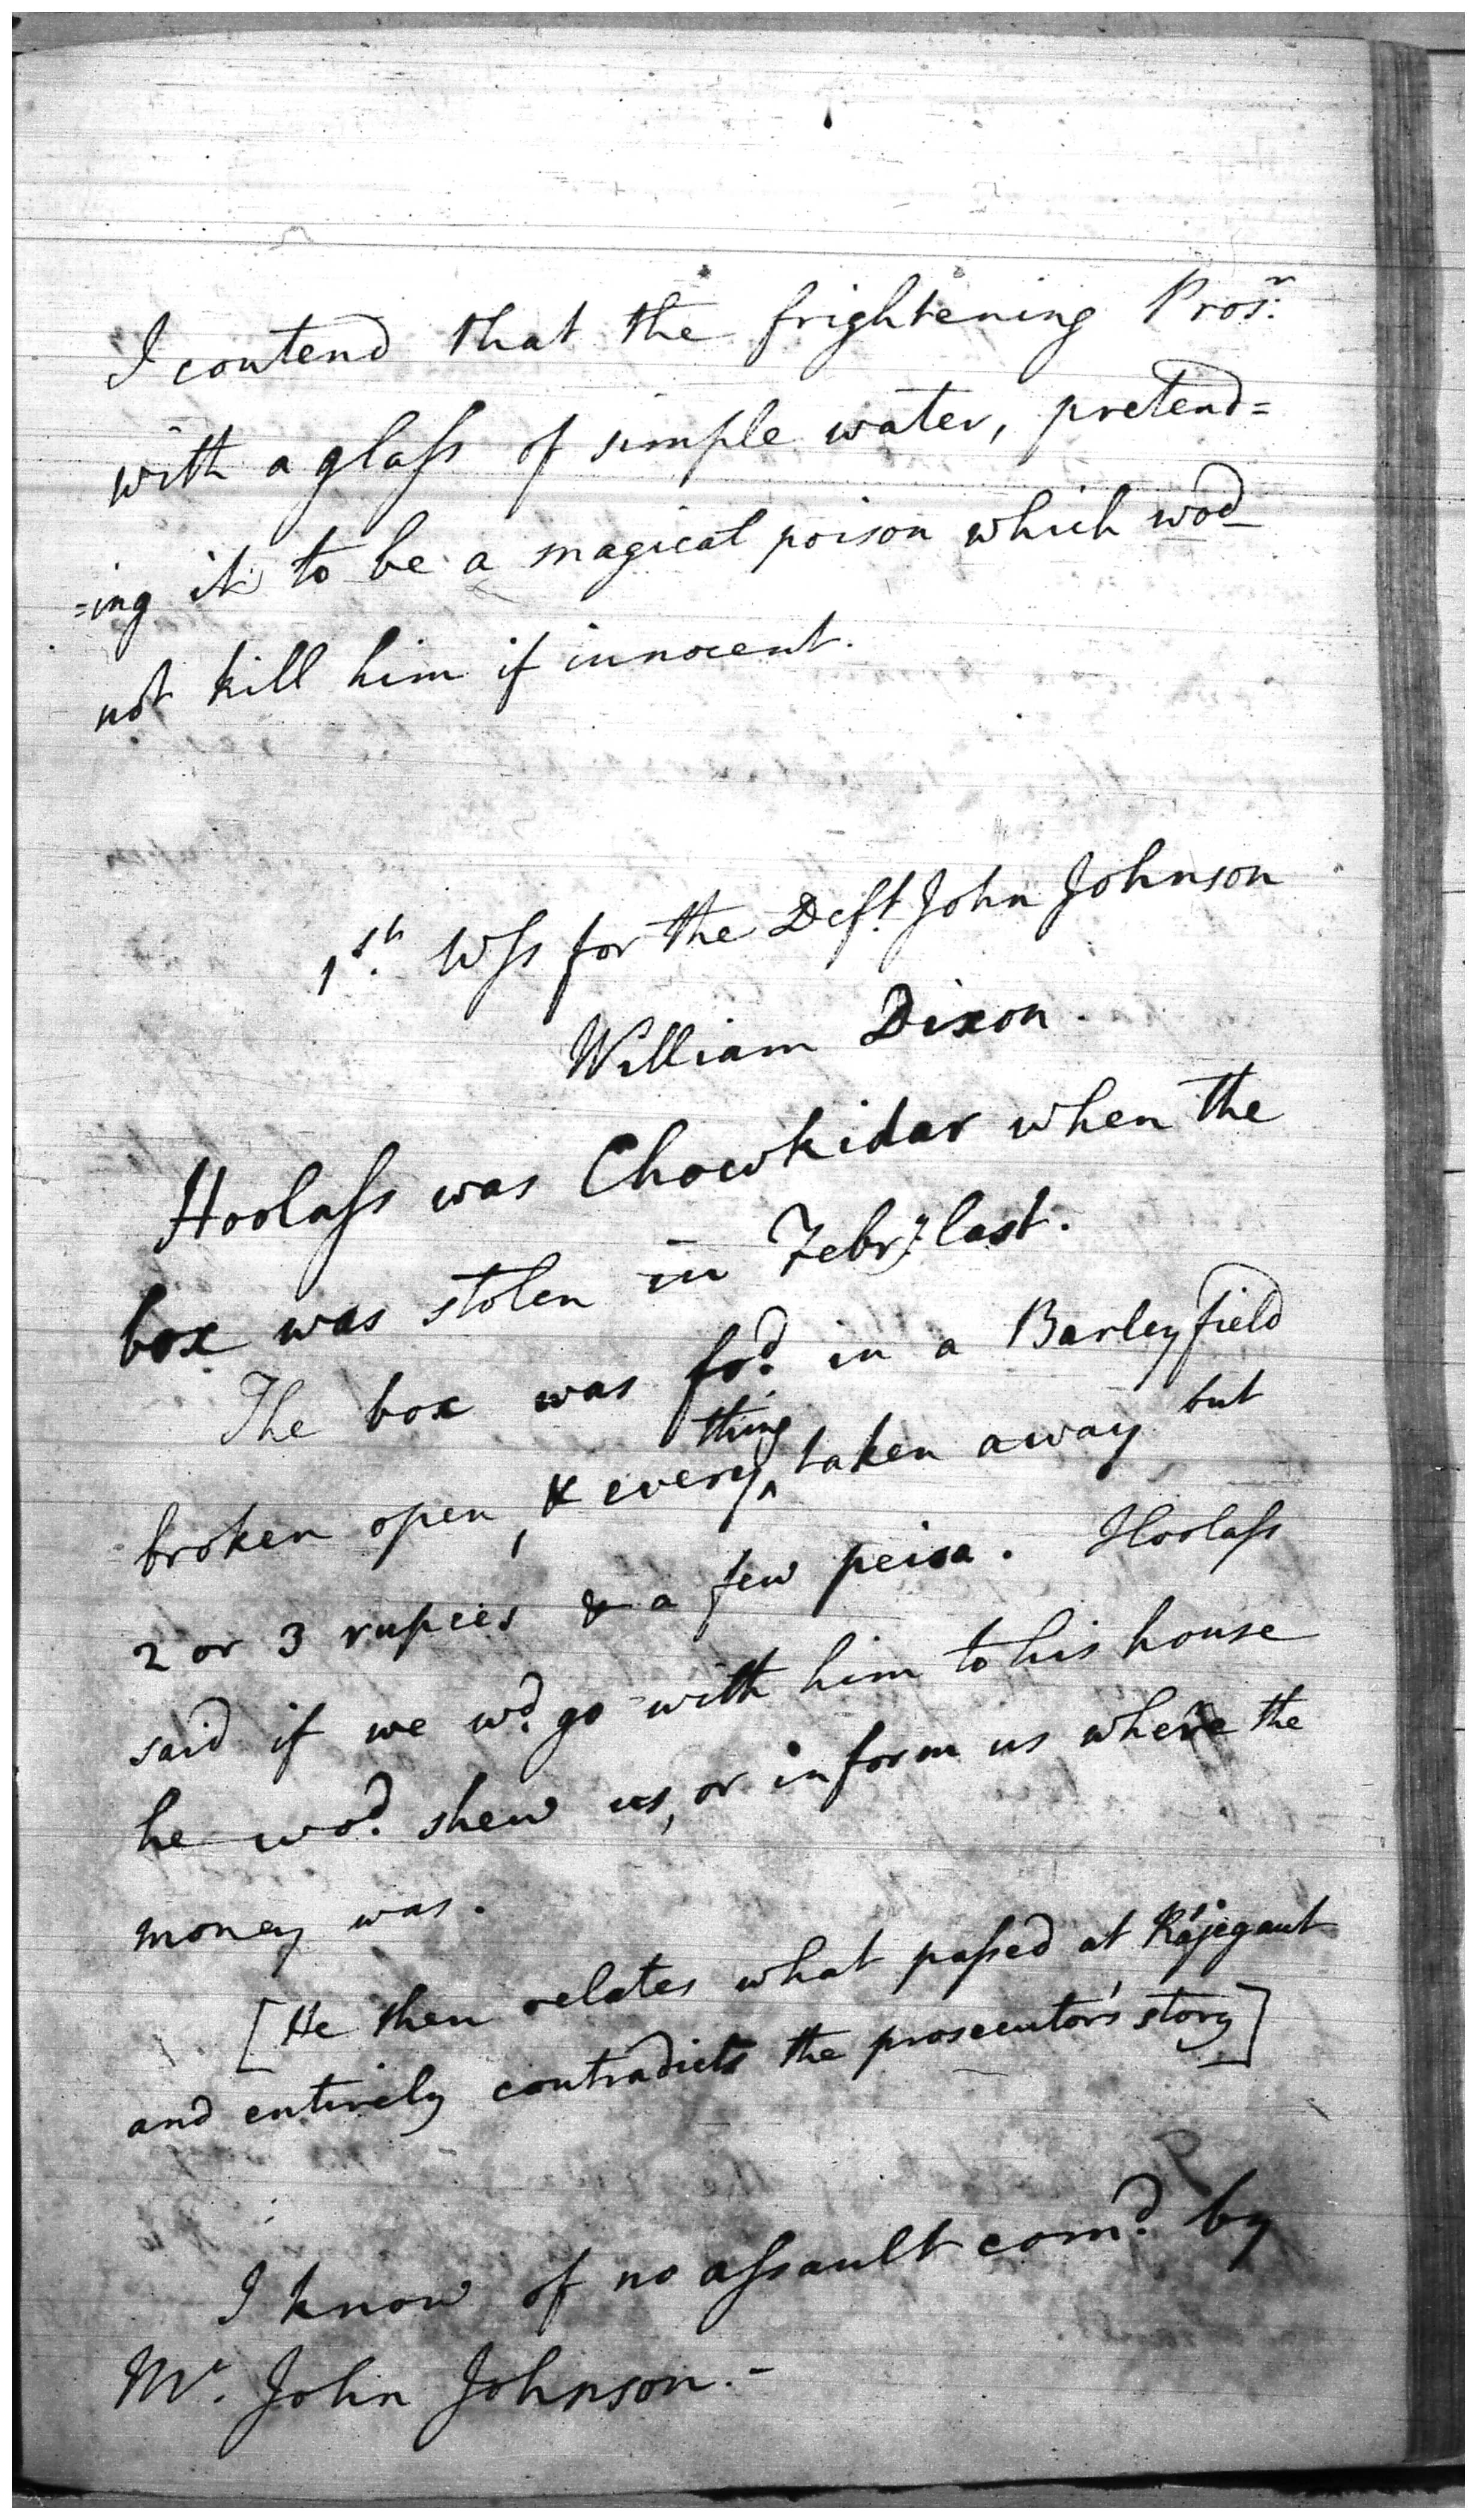 I contend that the frightening Pros.r
with a glass of simple water, pretend=
=ing it to be a magical poison which wod
not kill him if innocent.
1st. Wss for the Deft. John Johnson
William Dixon.
Hoolass was Chowkidar when the
box was stolen in Febry last.
The box was fod. in a Barleyfield
broken open, & every thing taken away but
2 or 3 rupees & a few peisa. Hoolass
said if we wd. go with him to his house
he wod. shew us, or inform us where the
money was.
[He then relates what passed at Rájegaut
and entirely contradicts the prosecutor's story]
I know of no assault comd. by
Mr. John Johnson.-